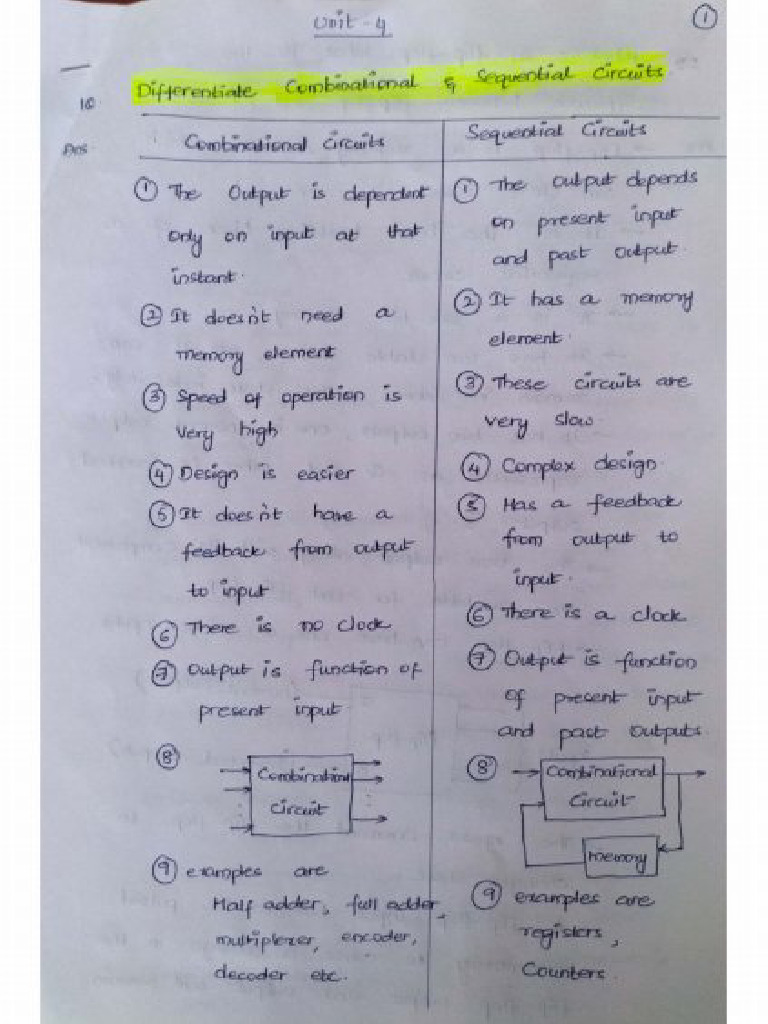 Unit - 4
1
Differentiate Combinational & Sequential Circuits
10
Ans
Combinational Circuits
① The Output is dependent
only on input at that
instant.
② It does'nt need a
memory element
③ Speed of operation is
very high
④ Design is easier
⑤ It does'nt have a
feedback from output
to input
⑥ There is no clock
⑦ Output is function of
present input
⑧
Combination
circuit
⑨ examples are
Half adder, full adder,
multiplexer, encoder,
decoder etc.
Sequential Circuits
① The output depends
on present input
and past output.
② It has a memory
element.
③ These circuits are
very slow.
④ Complex design.
⑤ Has a feedback
from output to
input.
⑥ There is a clock
⑦ Output is function
of present input
and past outputs.
⑧
Combinational
Circuit
memory
⑨ examples are
registers,
Counters.